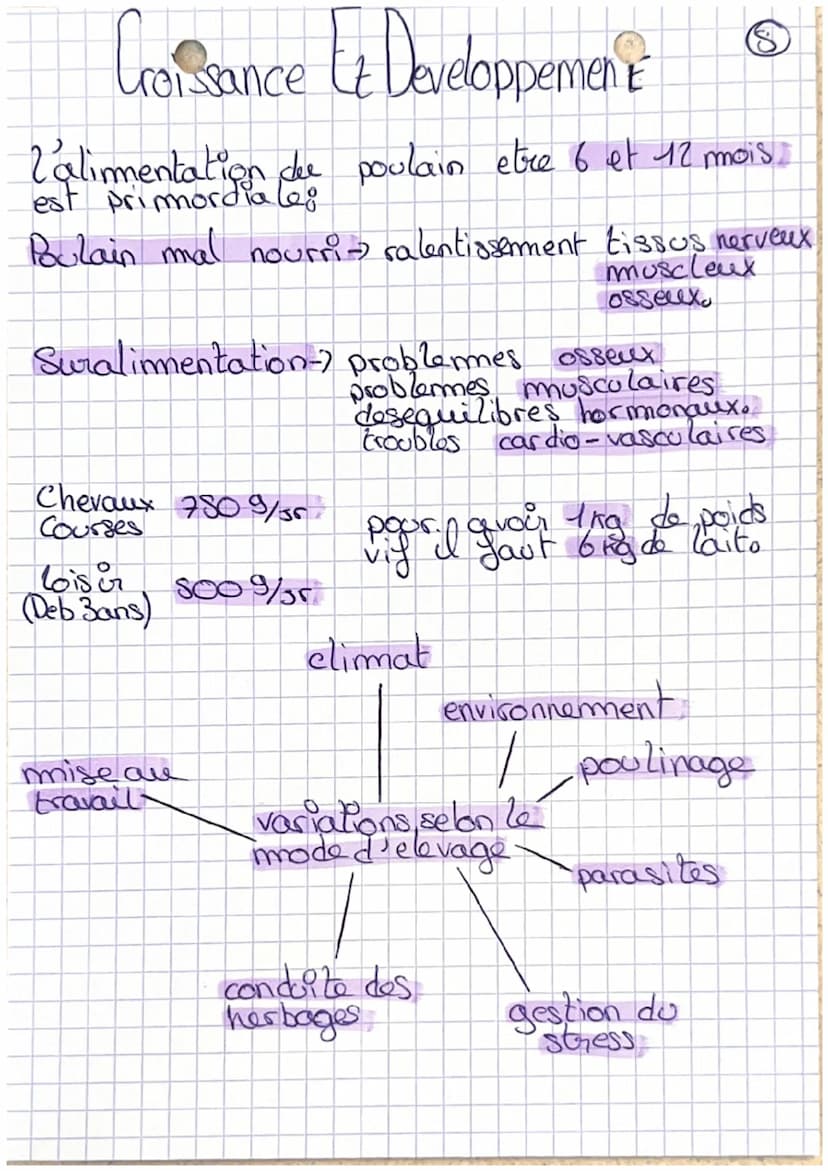 Croissance Et Developpement
8
L'alimmentation du poulain etre 6 et 12 mois
est primordiale:
Poulain mal nourri → ralentissement tissus nerveux
muscleux
osseux.
Suralimmentation → problemmes osseux
problemmes musculaires
desequilibres hormonaux.
troubles cardio-vasculaires
Chevaux 780 g/jr
Courses
pour avoir 1kg de poids
vif il faut 6kg de lait.
Loisir 500 g/jr
(Deb 3ans)
climat
environnement
mise au
travail
poulinage
variations selon le
mode d'elevage
parasites
conduite des
herbages
gestion du
stress